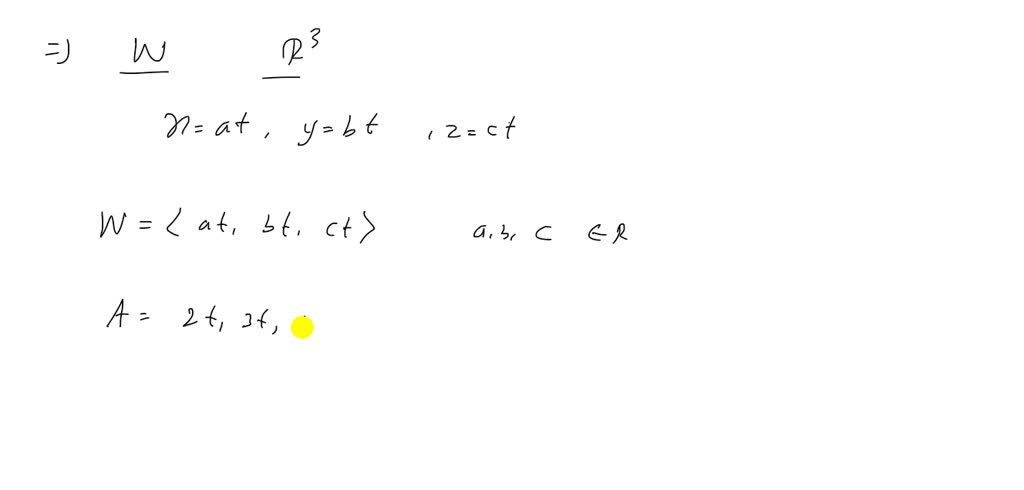 =) W R³
x = at, y = bt , z = ct
W = < at, bt, ct > a, b, c ∈ R
A = 2t, 3t,